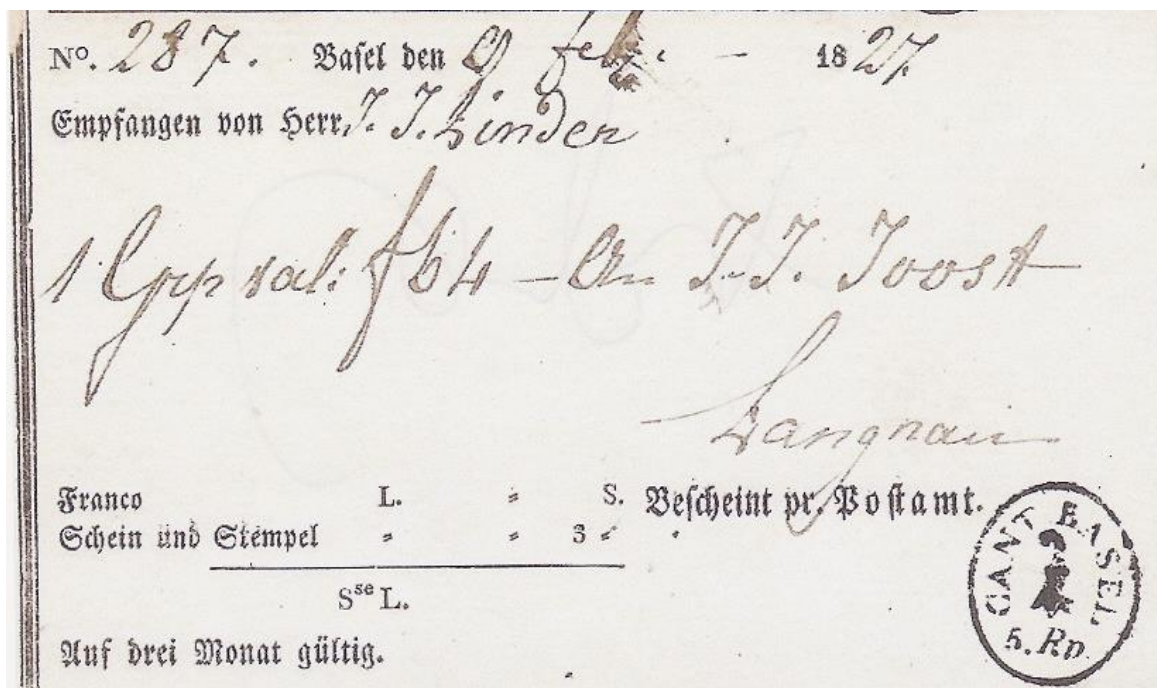 No. 287. Basel den 9 feb: - 1827
Empfangen von Herr. J. J. Linder
1 Grp val: f 64 - An J. J. Joost
Langnau
Franco L. " S. Bescheint pr. Postamt.
Schein und Stempel " " 3 "
Sse L.
Auf drei Monat gültig.
CANT BASEL
5. Rp